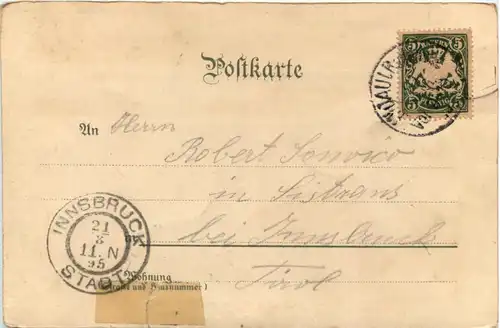 5 BAYERN 5
Postkarte
An Herrn
Robert
in Sistrans
bei Innsbruck
Tirol
INNSBRUCK
21
8
11.N
95
STADT
Wohnung
(Straße und Hausnummer)